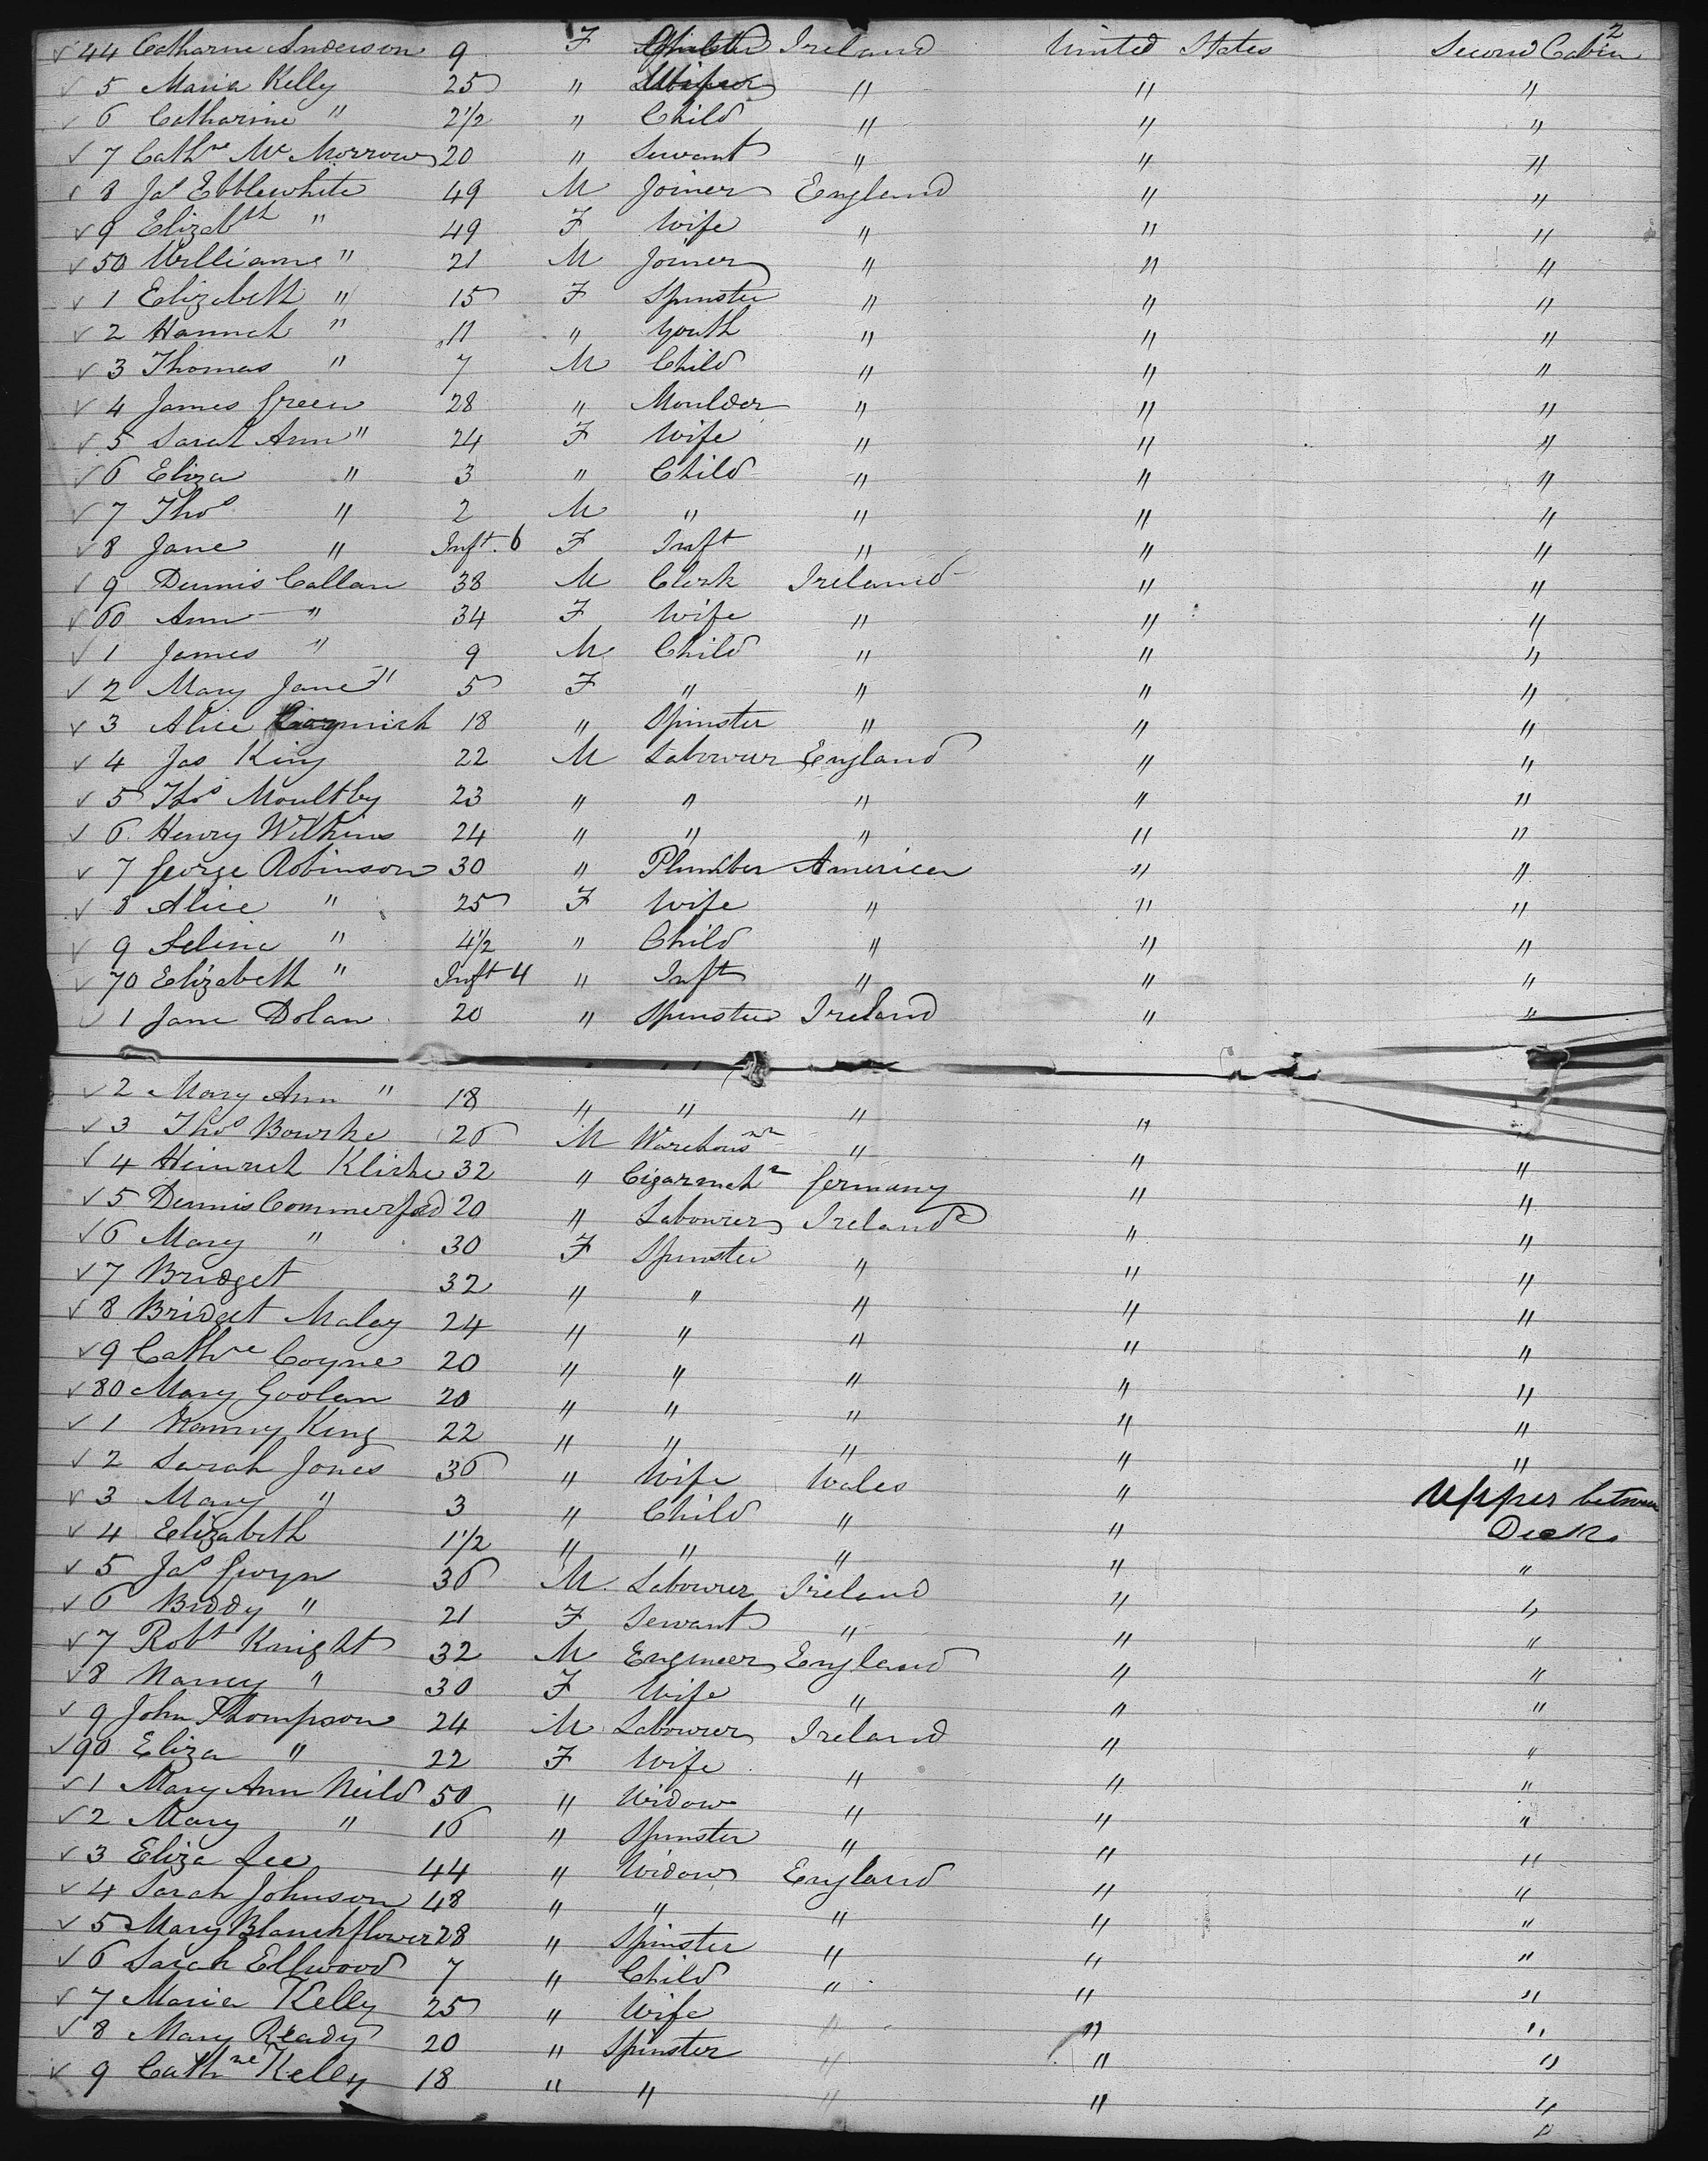 2
44 Catharine Anderson 9 F Ireland United States Second Cabin
5 Maria Kelly 25 " " " "
6 Catharine " 2½ " Child " " "
7 Cathne Mc Morrow 20 " Servant " " "
8 Jas Ebblewhite 49 M Joiner England " "
9 Elizabth " 49 F Wife " " "
50 William " 21 M Joiner " " "
1 Elizabeth " 15 F Spinster " " "
2 Hannah " 11 " Youth " " "
3 Thomas " 7 M Child " " "
4 James Green 28 " Moulder " " "
5 Sarah Ann " 24 F Wife " " "
6 Eliza " 3 " Child " " "
7 Thos " 2 M " " " "
8 Jane " Inft. 6 F Inft " " "
9 Dennis Callan 38 M Clerk Ireland " "
60 Ann " 34 F Wife " " "
1 James " 9 M Child " " "
2 Mary Jane " 5 F " " " "
3 Alice 18 " Spinster " " "
4 Jas King 22 M Labourer England " "
5 Thos Moultby 23 " " " " "
6 Henry Wilkins 24 " " " " "
7 George Robinson 30 " Plumber America " "
8 Alice " 25 F Wife " " "
9 Selina " 4½ " Child " " "
70 Elizabeth " Inft 4 " Inft " " "
1 Jane Dolan 20 " Spinster Ireland " "
2 Mary Ann " 18 " " " " "
3 Thos Bourke 26 M " " "
4 Heinrich Klishe 32 " Cigarmakr Germany " "
5 Dennis Commerford 20 " Labourer Ireland " "
6 Mary " 30 F Spinster " " "
7 Bridget 32 " " " " "
8 Bridget Maley 24 " " " " "
9 Cathne Coyne 20 " " " " "
80 Mary Goolan 20 " " " " "
1 Nanny King 22 " " " " "
2 Sarah Jones 36 " Wife Wales " Upper between
3 Mary " 3 " Child " " Deck
4 Elizabeth 1½ " " " " "
5 Jas Gwyn 36 M Labourer Ireland " "
6 Biddy " 21 F Servant " " "
7 Robt Knight 32 M Engineer England " "
8 Nancy " 30 F Wife " " "
9 John Thompson 24 M Labourer Ireland " "
90 Eliza " 22 F Wife " " "
1 Mary Ann Neild 50 " Widow " " "
2 Mary " 16 " Spinster " " "
3 Eliza Lee 44 " Widow England " "
4 Sarah Johnson 48 " " " " "
5 Mary Blanchflower 28 " Spinster " " "
6 Sarah Ellwood 7 " Child " " "
7 Maria Kelly 25 " Wife " " "
8 Mary Ready 20 " Spinster " " "
9 Cathne Kelly 18 " " " " "